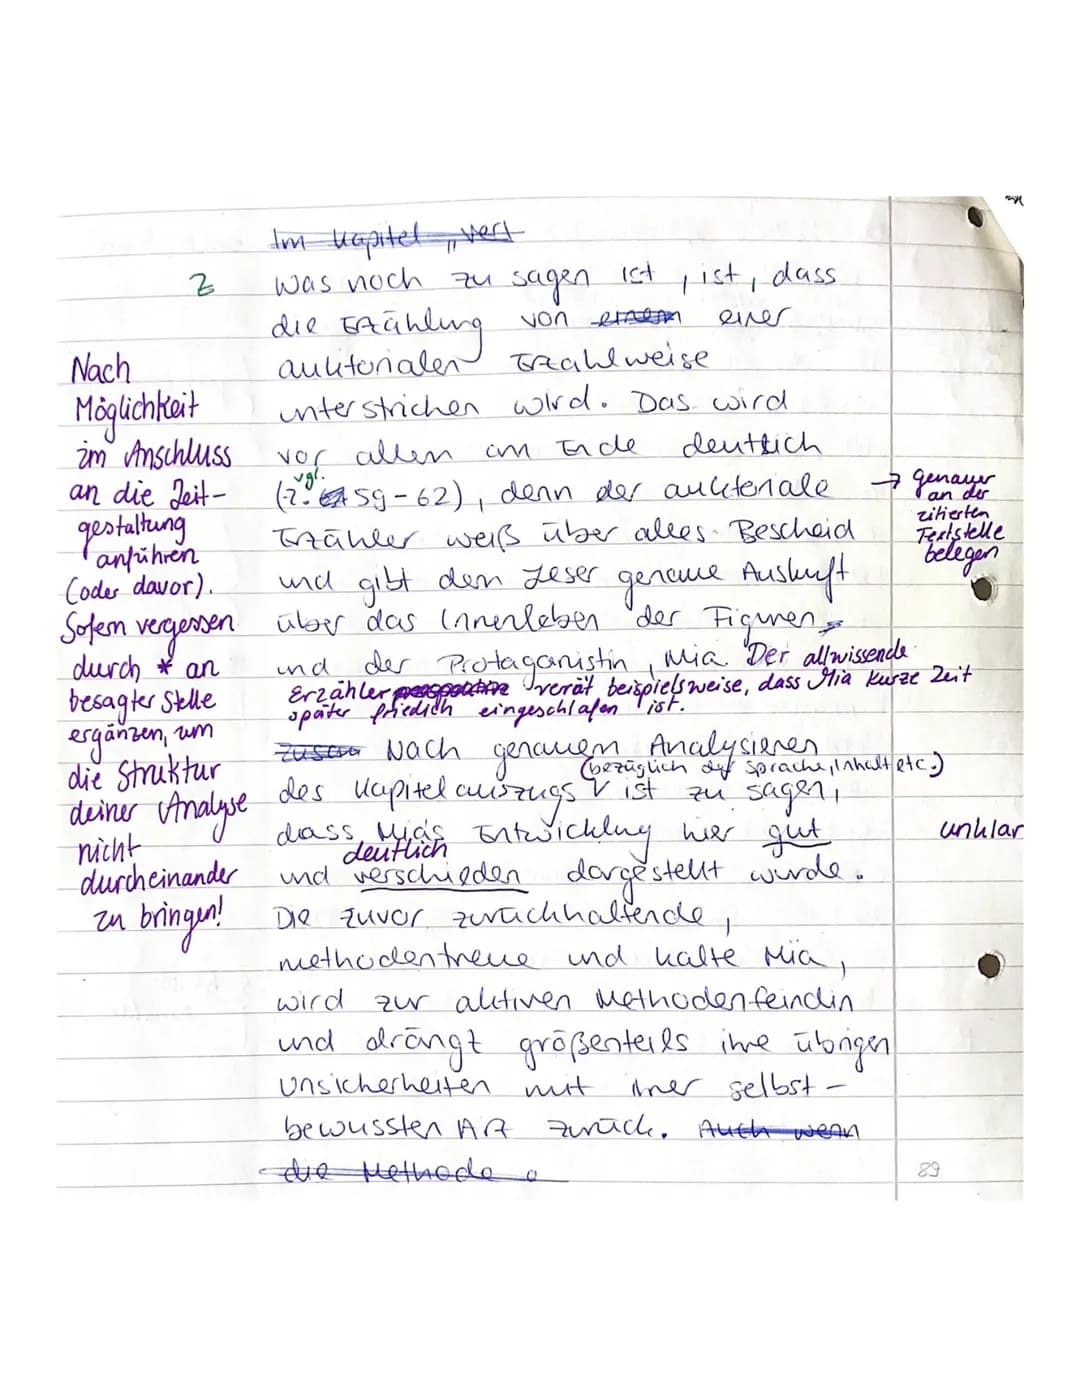 Im Kapitel „vert
Z
was noch zu sagen ist, ist, dass
die Erzählung von einem einer
auktorialen Erzahlweise
unterstrichen wird. Das wird
vor allem am Ende deutlich
vgl.
(Z. 59-62), denn der auktoriale
Erzähler weiß über alles Bescheid
und gibt dem Leser genaue Auskunft
über das Innenleben der Figuren
und der Protagonistin, Mia. Der allwissende
Erzähler perspektive verrät beispielsweise, dass Mia kurze Zeit
später friedich eingeschlafen ist.
zusam Nach genauem Analysieren
(bezüglich der Sprache, Inhalt etc.)
des Kapitelauszugs V ist zu sagen,
dass Mia's Entwicklung hier gut
deutlich
und verschieden dargestellt wurde.
Die zuvor zurückhaltende,
methodentreue und kalte Mia,
wird zur aktiven Methodenfeindin
und drängt größenteils ihre übrigen
Unsicherheiten mit ihrer selbst-
bewussten Art zurück. Auch wenn
die Methode
Nach
Möglichkeit
im Anschluss
an die Zeit-
gestaltung
anführen
(oder davor).
Sofern vergessen
durch * an
besagter Stelle
ergänzen, um
die Struktur
deiner Analyse
nicht
durcheinander
zu bringen!
→ genauer
an der
zitierten
Textstelle
belegen
unklar
89